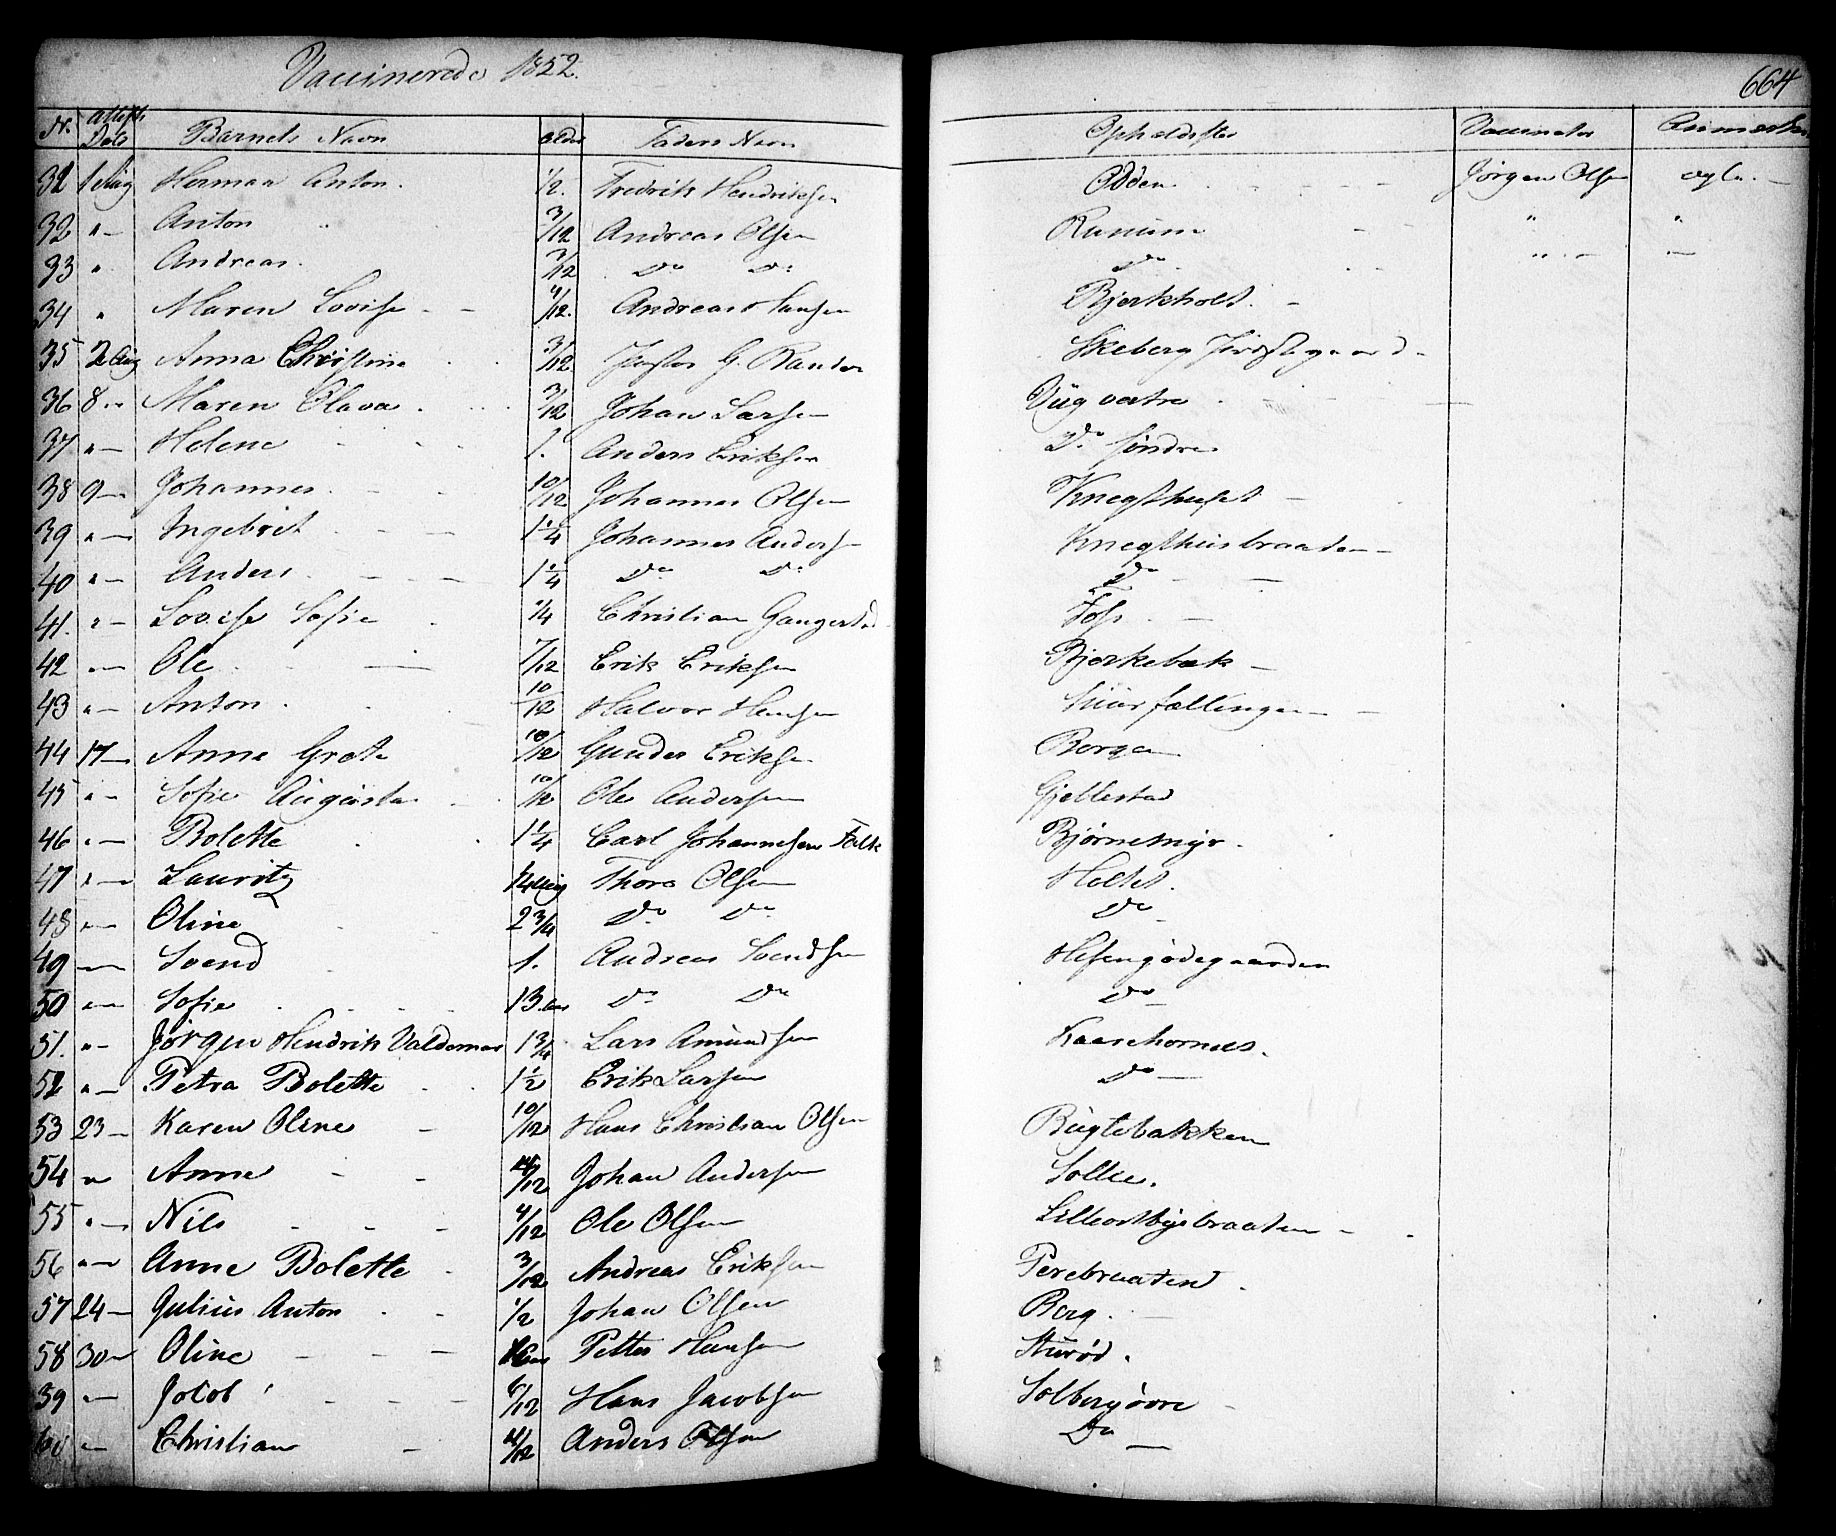 Vaccinerede 1852.
664
Nr. Attests Dato Barnets Navn alder Faders Navn Opholdsster Vaccinator Anmærkn
32 1 Aug Herman Anton. 1/2. Fredrik Hendriksen Odden Jørgen Olsen ægte. —
32 " — Anton 3/12 Andreas Olsen " "
33 " Andreas. 3/12 Do Do Do " —
34 " Maren Lovise 4/12. Andreas Hansen Bjerkholt. —
35 2 Aug Anna Christine 3/12 G. Rander Skeberg Præstegaard
36 8 " Maren Olava. 3/12 Johan Larsen Viig vestre
37 " — Helene 1. Anders Eriksen Do søndre
38 9 — Johannes. 10/12 Johannes Olsen Knegthuset —
39 " — Ingebret 1 1/4 Johannes Anders Knegthusbraaten —
40 " — Anders 1 1/4 Do Do Do —
41. " — Lovise Sofie 1/4 Christian Gangestad Foss. —
42 " — Ole 7/12 Erik Eriksen Bjerkebæk —
43 " — Anton. 10/12 Halvor Hansen —
44 17 — Anne Grete 10/12 Gunder Eriksen Borge
45 " — Sofie Augusta 10/12 Ole Andersen Gjellestad
46 " — Bolette 1 1/4 Carl Johannesen Falk Bjørnemyr.
47 " — Lauritz Thore Olsen Holtet.
48 " — Oline 2 3/4 Do Do Do
49 — Svend 1. Andreas Svendsen Hesengødegaarden
50 " — Sofie 13 aar Do Do Do
51. " — Jørgen Hendrik Valdemar 1 3/4 Lars Amundsen Kaarehornes.
52 " — Petra Bolette 1 1/2 Erik Larsen Do —
53 23 — Karen Oline 10/12 Hans Christian Olsen Bugtebakken
54 " Anne /12 Johan Andersen Solli.
55 " — Nils 4/12 Ole Olsen Lilleostbyebraaten —
56 " — Anne Bolette 3/12 Andreas Eriksen Perebraaten.
57 24 — Julius Anton 1/2 Johan Olsen Berg.
58 30 — Oline Petter Hansen Sturød.
59 " — Jacob 6/12 Hans Jacobsen Solberg øvre
60 " — Christian 4/12 Anders Olsen Do —